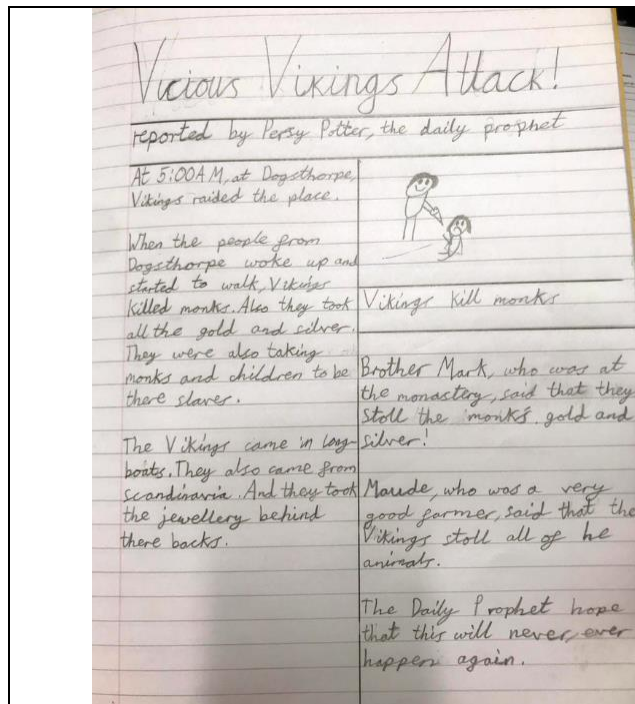 Vicious Vikings Attack!
reported by Persy Potter, the daily prophet
At 5:00AM, at Dogsthorpe,
Vikings raided the place.
When the people from
Dogsthorpe woke up and
started to walk, Vikings
killed monks. Also they took
all the gold and silver.
They were also taking
monks and children to be
there slaves.
The Vikings came in long-
boats. They also came from
scandinavia. And they took
the jewellery behind
there backs.
Vikings kill monks
Brother Mark, who was at
the monastery, said that they
stoll the monks gold and
silver!
Maude, who was a very
good farmer, said that the
Vikings stoll all of he
animals.
The Daily Prophet hope
that this will never, ever
happen again.